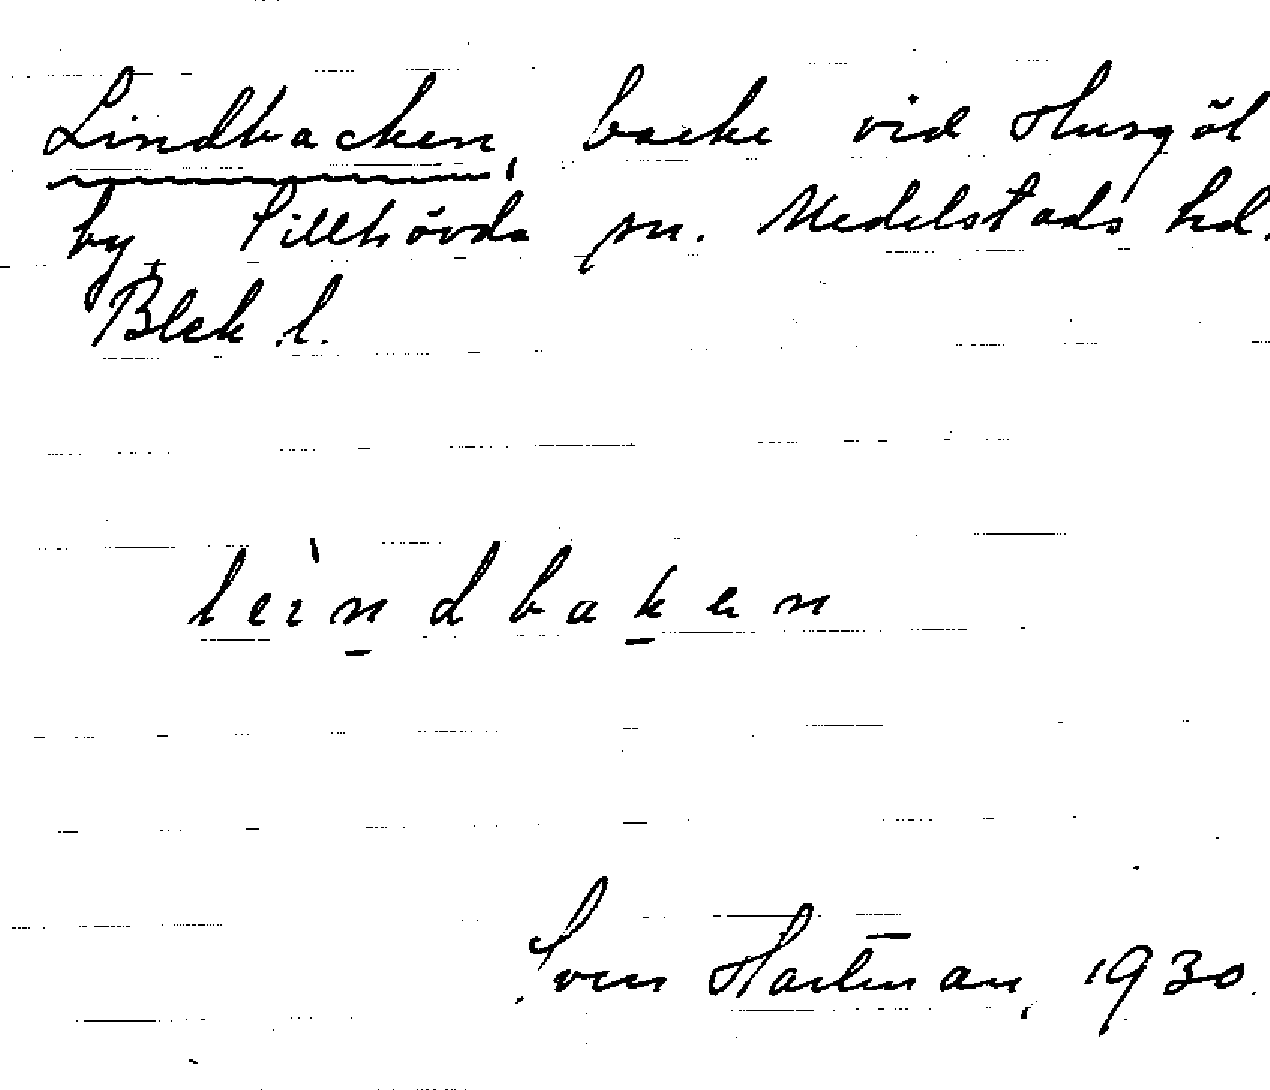 Lindbacken, backe vid Husgöl
by Tillhövda sn. Medelstads hd.
Blek l.
leìndbaken
Sven Hartman, 1930.